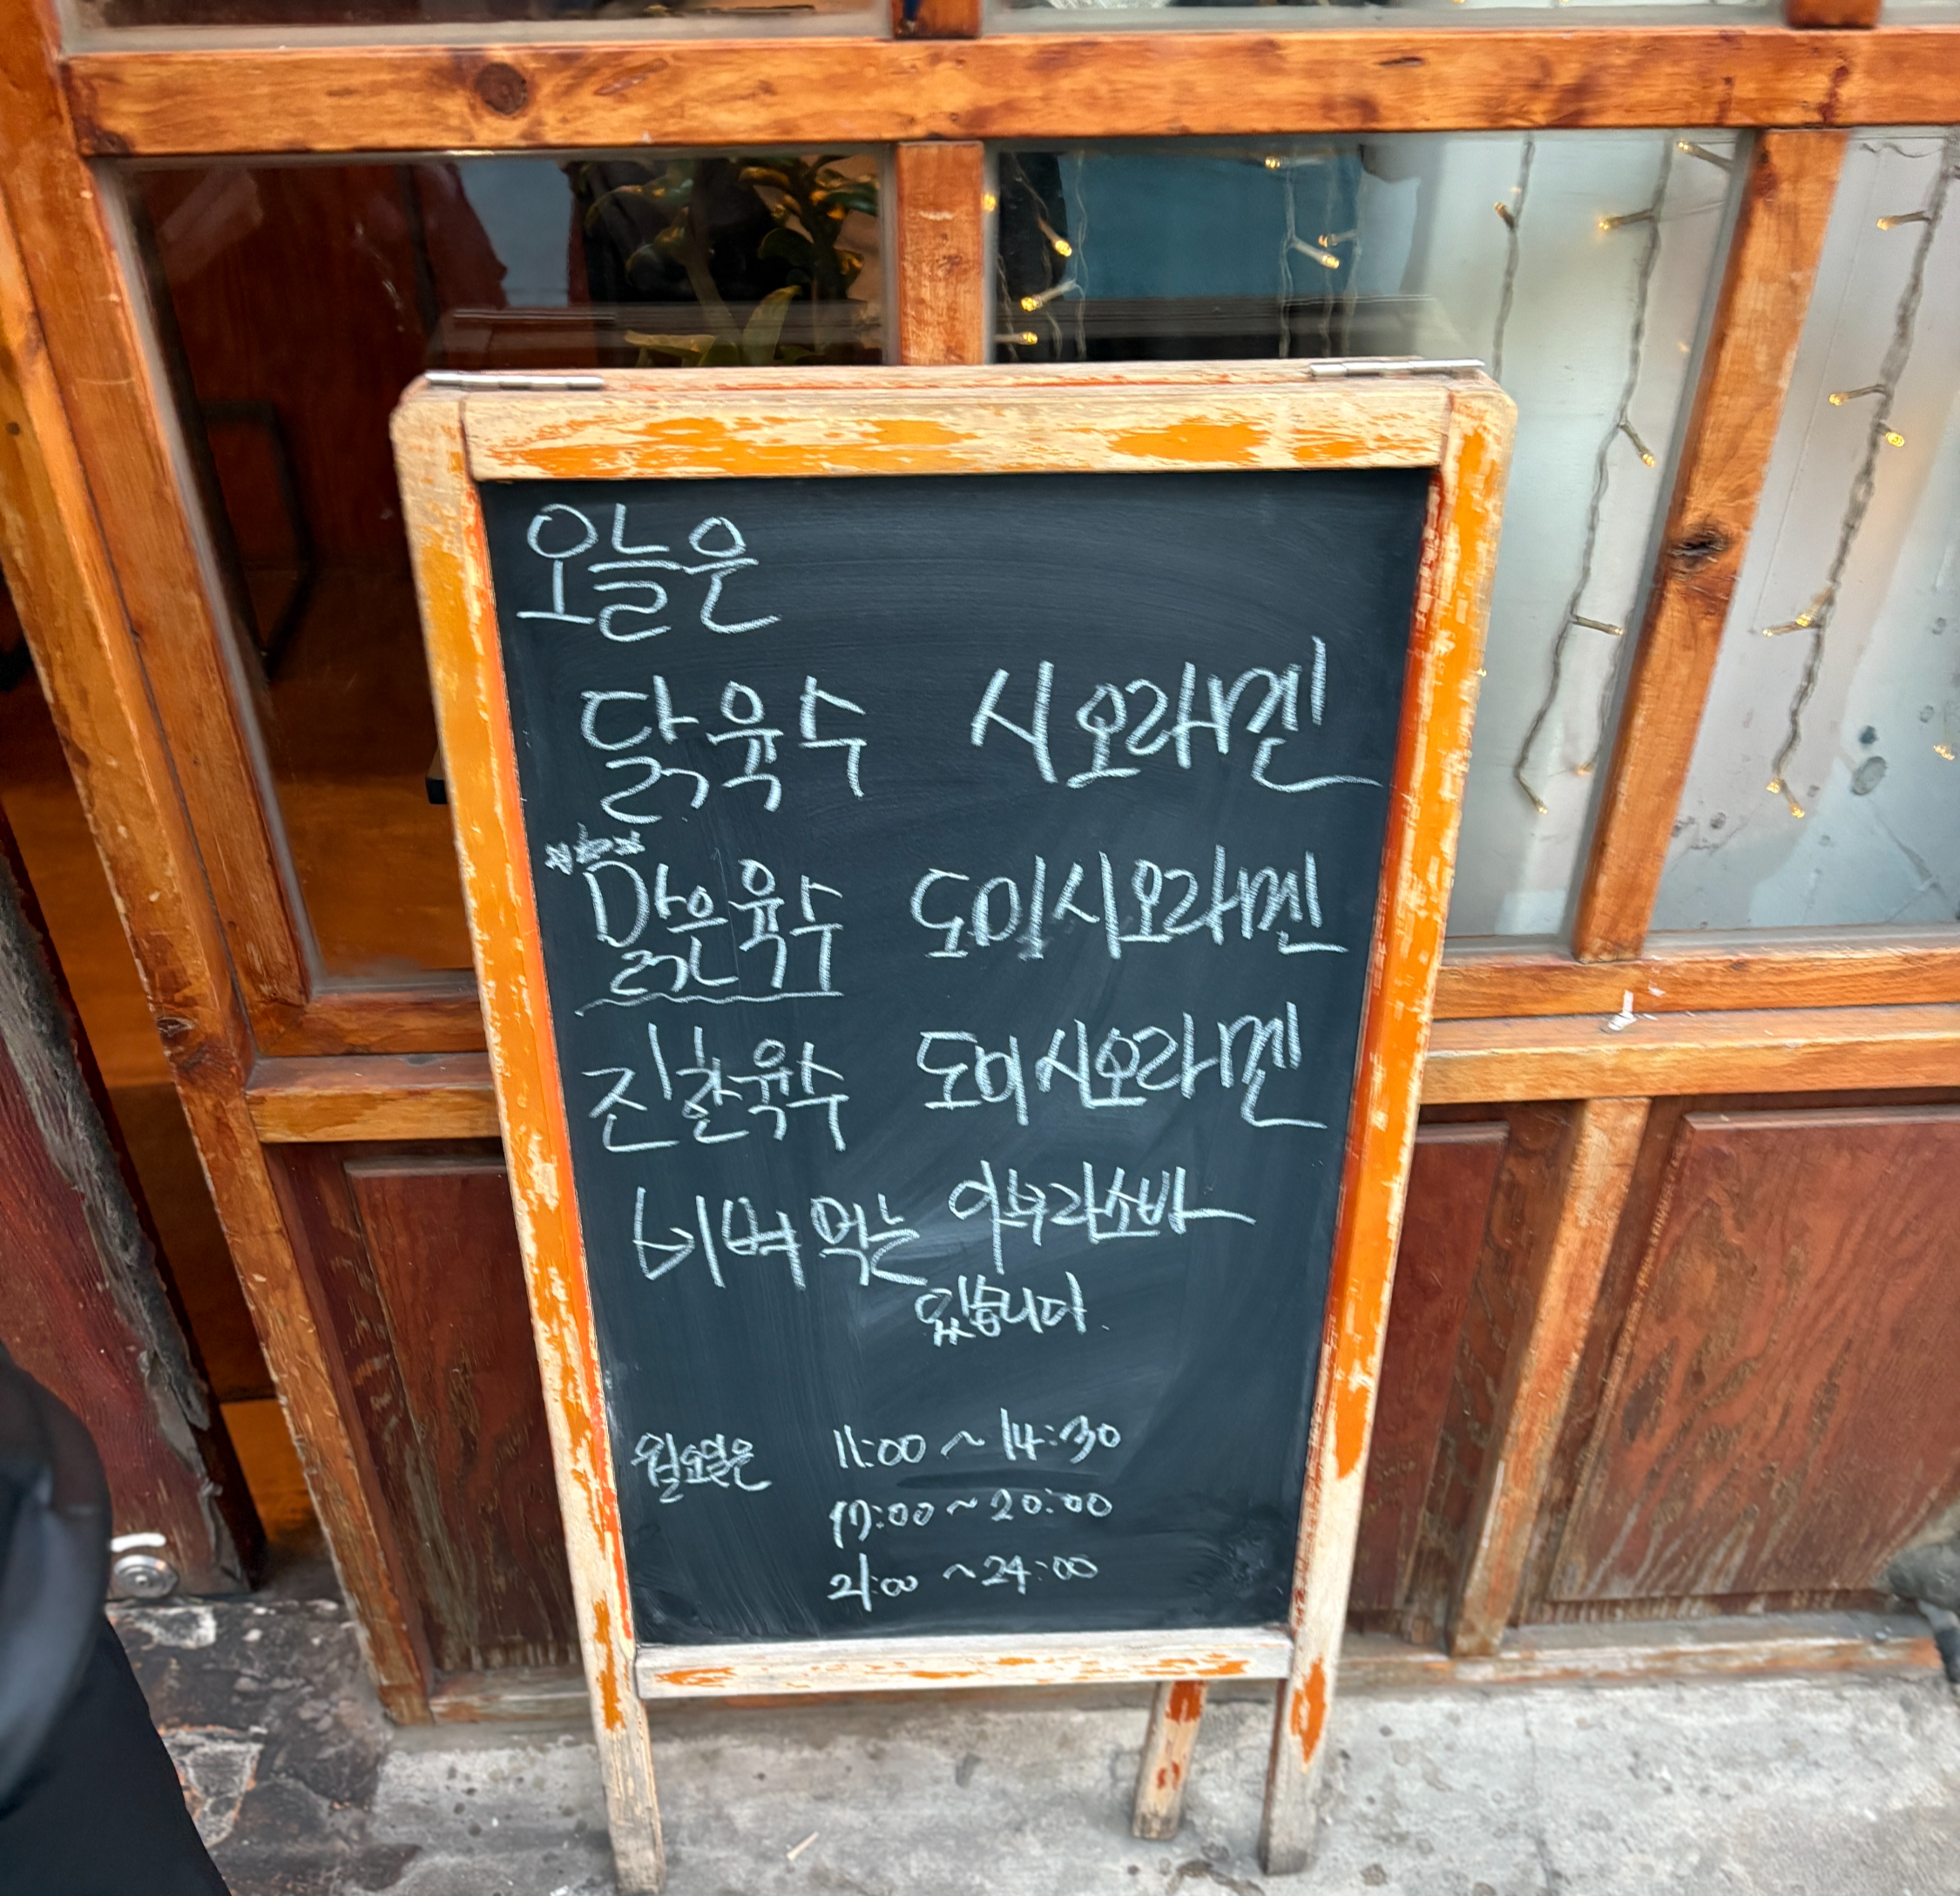 오늘은
닭육수 시오라멘
맑은육수 도미시오라멘
진한육수 도미시오라멘
비벼먹는 아부라소바
있습니다.
월요일은 11:00 ~ 14:30
17:00 ~ 20:00
21:00 ~ 24:00